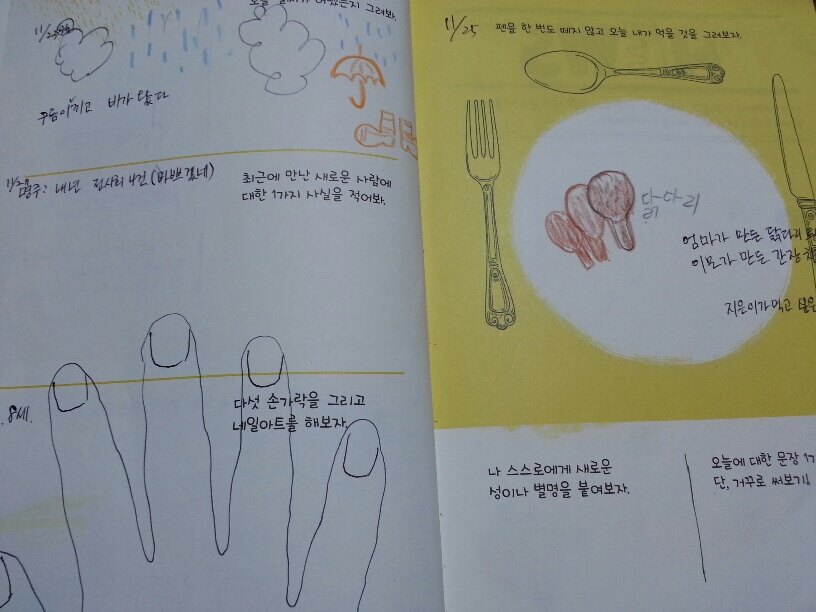 오늘 날씨가 어땠는지 그려봐.
11/25
구름이 끼고 비가 왔다
최근에 만난 새로운 사람에
대한 1가지 사실을 적어봐.
다섯 손가락을 그리고
네일아트를 해보자.
8세.
11/25
펜을 한 번도 떼지 않고 오늘 내가 먹을 것을 그려보자.
닭다리
엄마가 만든 닭다리
이모가 만든 간장
지은이가 먹고 싶은
나 스스로에게 새로운
성이나 별명을 붙여보자.
오늘에 대한 문장 1가
단, 거꾸로 써보기!